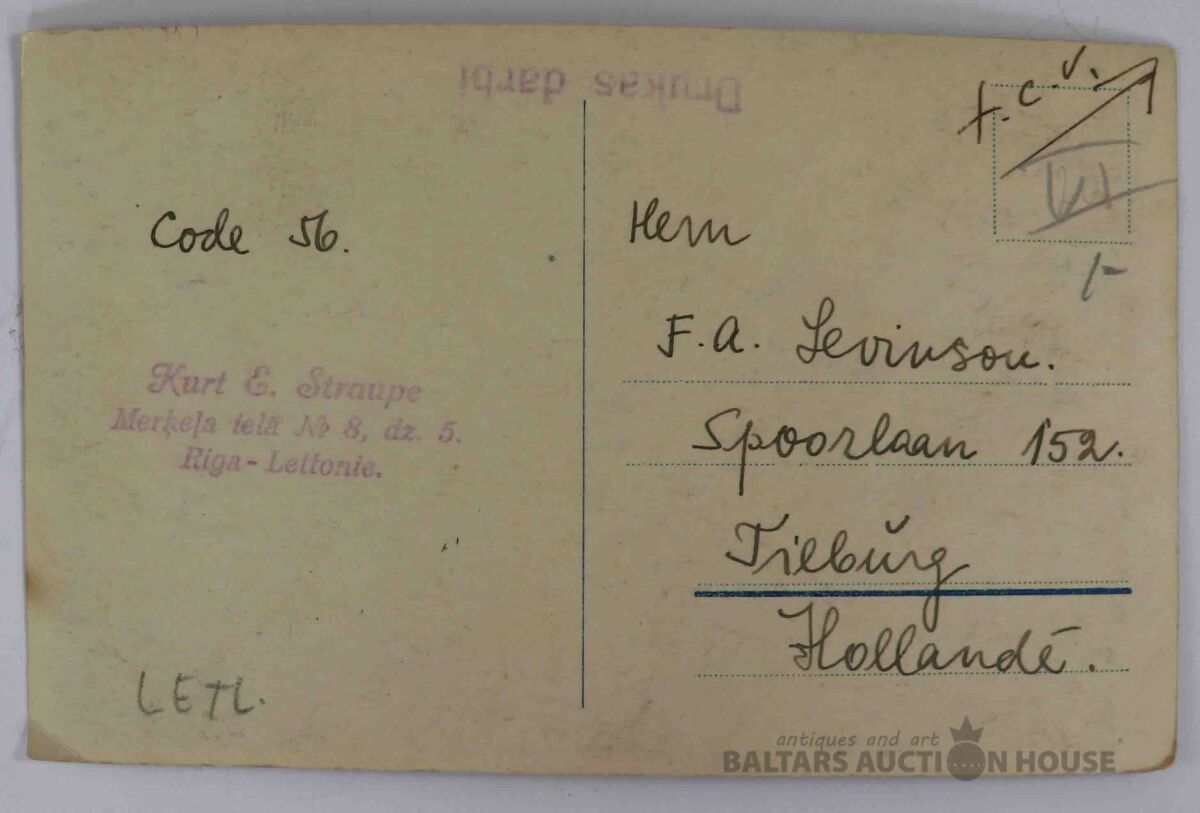 Drukas darbi
t.c.v.
Code 56.
Kurt E. Straupe
Merķeļa ielā № 8, dz. 5.
Riga - Lettonie.
LETL.
Herrn
F.A. Levinson.
Spoorlaan 152.
Tilbŭrg
Hollandé.
antiques and art
BALTARS AUCTION HOUSE